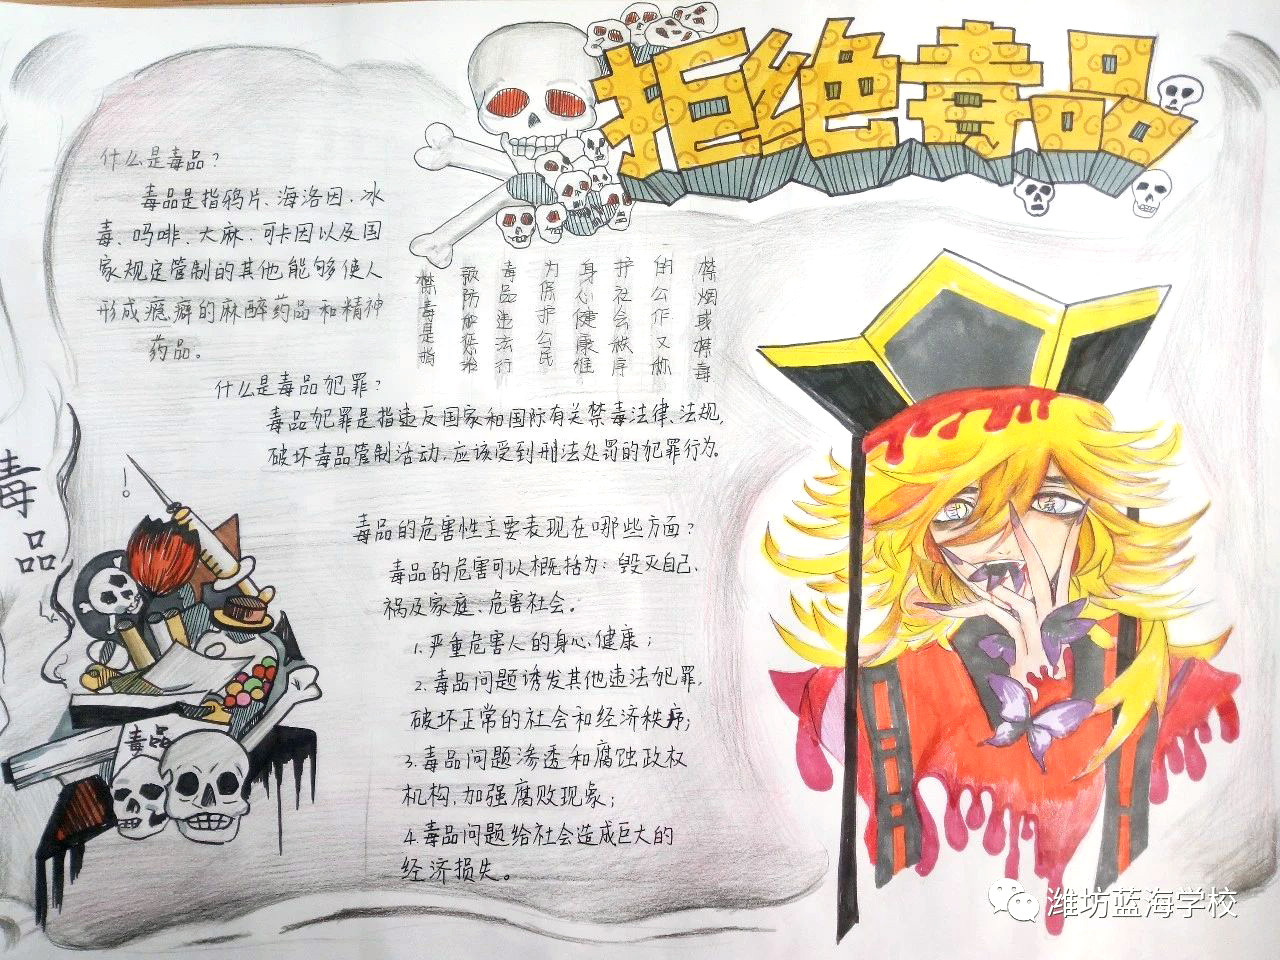 拒绝毒品
什么是毒品？
毒品是指鸦片、海洛因、冰
毒、吗啡、大麻、可卡因以及国
家规定管制的其他能够使人
形成瘾癖的麻醉药品和精神
药品。
禁烟或禁毒
的工作又称
护社会秩序
身心健康维
为保护公民
毒品违法行
预防和惩治
禁毒是指
什么是毒品犯罪？
毒品犯罪是指违反国家和国际有关禁毒法律、法规，
破坏毒品管制活动，应该受到刑法处罚的犯罪行为。
毒品的危害性主要表现在哪些方面？
毒品的危害可以概括为：毁灭自己、
祸及家庭、危害社会。
1.严重危害人的身心健康；
2.毒品问题诱发其他违法犯罪，
破坏正常的社会和经济秩序；
3.毒品问题渗透和腐蚀政权
机构，加强腐败现象；
4.毒品问题给社会造成巨大的
经济损失。
毒品
毒品
潍坊蓝海学校